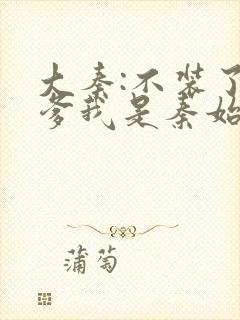 大秦:不装了
爹我是秦始
蒲萄